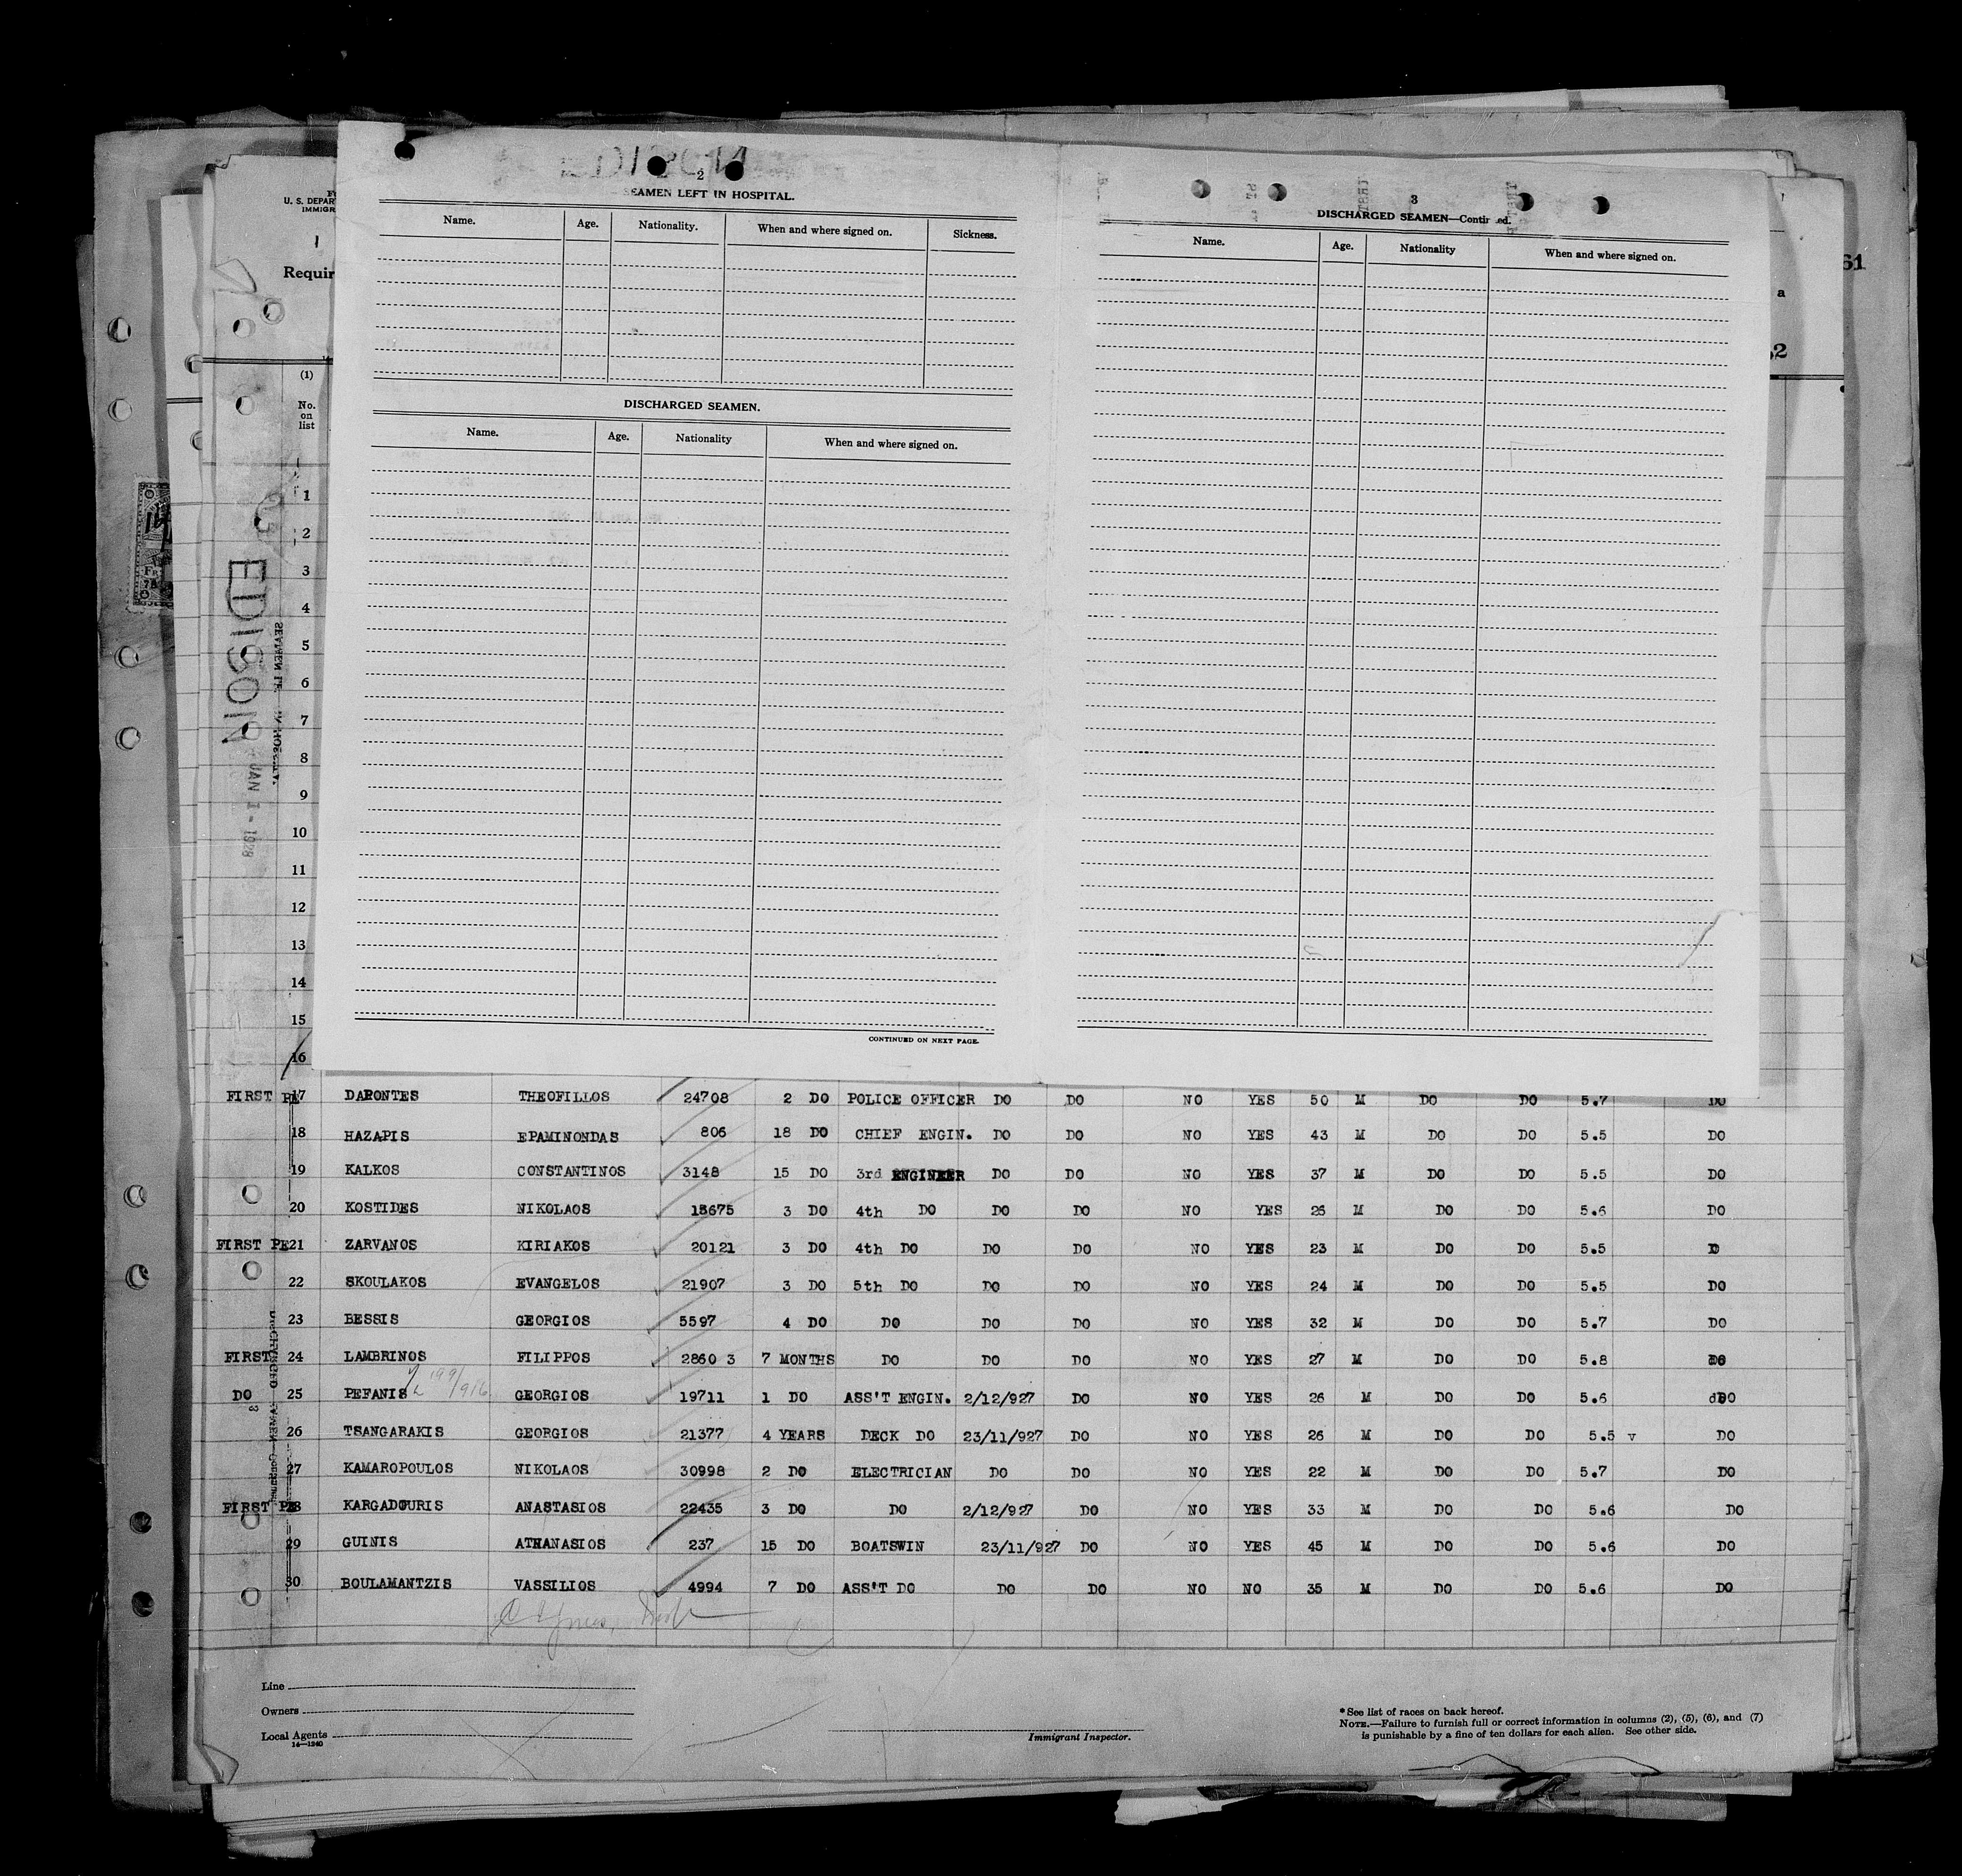 EDISON
2
SEAMEN LEFT IN HOSPITAL.
Name. Age. Nationality. When and where signed on. Sickness.
DISCHARGED SEAMEN.
Name. Age. Nationality When and where signed on.
CONTINUED ON NEXT PAGE.
3
DISCHARGED SEAMEN—Contin ed.
Name. Age. Nationality When and where signed on.
U. S. DEPAR
IMMIGR
Requir
61
a
2
(1)
No.
on
list
EDISON
JAN 1 - 1928
1
2
3
4
5
6
7
8
9
10
11
12
13
14
15
16
FIRST PE 17 DARONTES THEOFILLOS 24708 2 DO POLICE OFFICER DO DO NO YES 50 M DO DO 5.7 DO
18 HAZAPIS EPAMINONDAS 806 18 DO CHIEF ENGIN. DO DO NO YES 43 M DO DO 5.5 DO
19 KALKOS CONSTANTINOS 3148 15 DO 3rd ENGINEER DO DO NO YES 37 M DO DO 5.5 DO
20 KOSTIDES NIKOLAOS 15675 3 DO 4th DO DO DO NO YES 26 M DO DO 5.6 DO
FIRST PE 21 ZARVANOS KIRIAKOS 20121 3 DO 4th DO DO DO NO YES 23 M DO DO 5.5 DO
22 SKOULAKOS EVANGELOS 21907 3 DO 5th DO DO DO NO YES 24 M DO DO 5.5 DO
23 BESSIS GEORGIOS 5597 4 DO DO DO DO NO YES 32 M DO DO 5.7 DO
FIRST 24 LAMBRINOS FILIPPOS 2860 3 7 MONTHS DO DO DO NO YES 27 M DO DO 5.8 DO
DO 25 PEFANIS GEORGIOS 19711 1 DO ASS'T ENGIN. 2/12/927 DO NO YES 26 M DO DO 5.6 DO
26 TSANGARAKIS GEORGIOS 21377 4 YEARS DECK DO 23/11/927 DO NO YES 26 M DO DO 5.5 v DO
27 KAMAROPOULOS NIKOLAOS 30998 2 DO ELECTRICIAN DO DO NO YES 22 M DO DO 5.7 DO
FIRST PE 28 KARGADOURIS ANASTASIOS 22435 3 DO DO 2/12/927 DO NO YES 33 M DO DO 5.6 DO
29 GUINIS ATHANASIOS 237 15 DO BOATSWIN 23/11/927 DO NO YES 45 M DO DO 5.6 DO
30 BOULAMANTZIS VASSILIOS 4994 7 DO ASS'T DO DO DO NO NO 35 M DO DO 5.6 DO
Line
Owners
Local Agents
14—1240
Immigrant Inspector.
*See list of races on back hereof.
NOTE.—Failure to furnish full or correct information in columns (2), (5), (6), and (7)
is punishable by a fine of ten dollars for each alien. See other side.